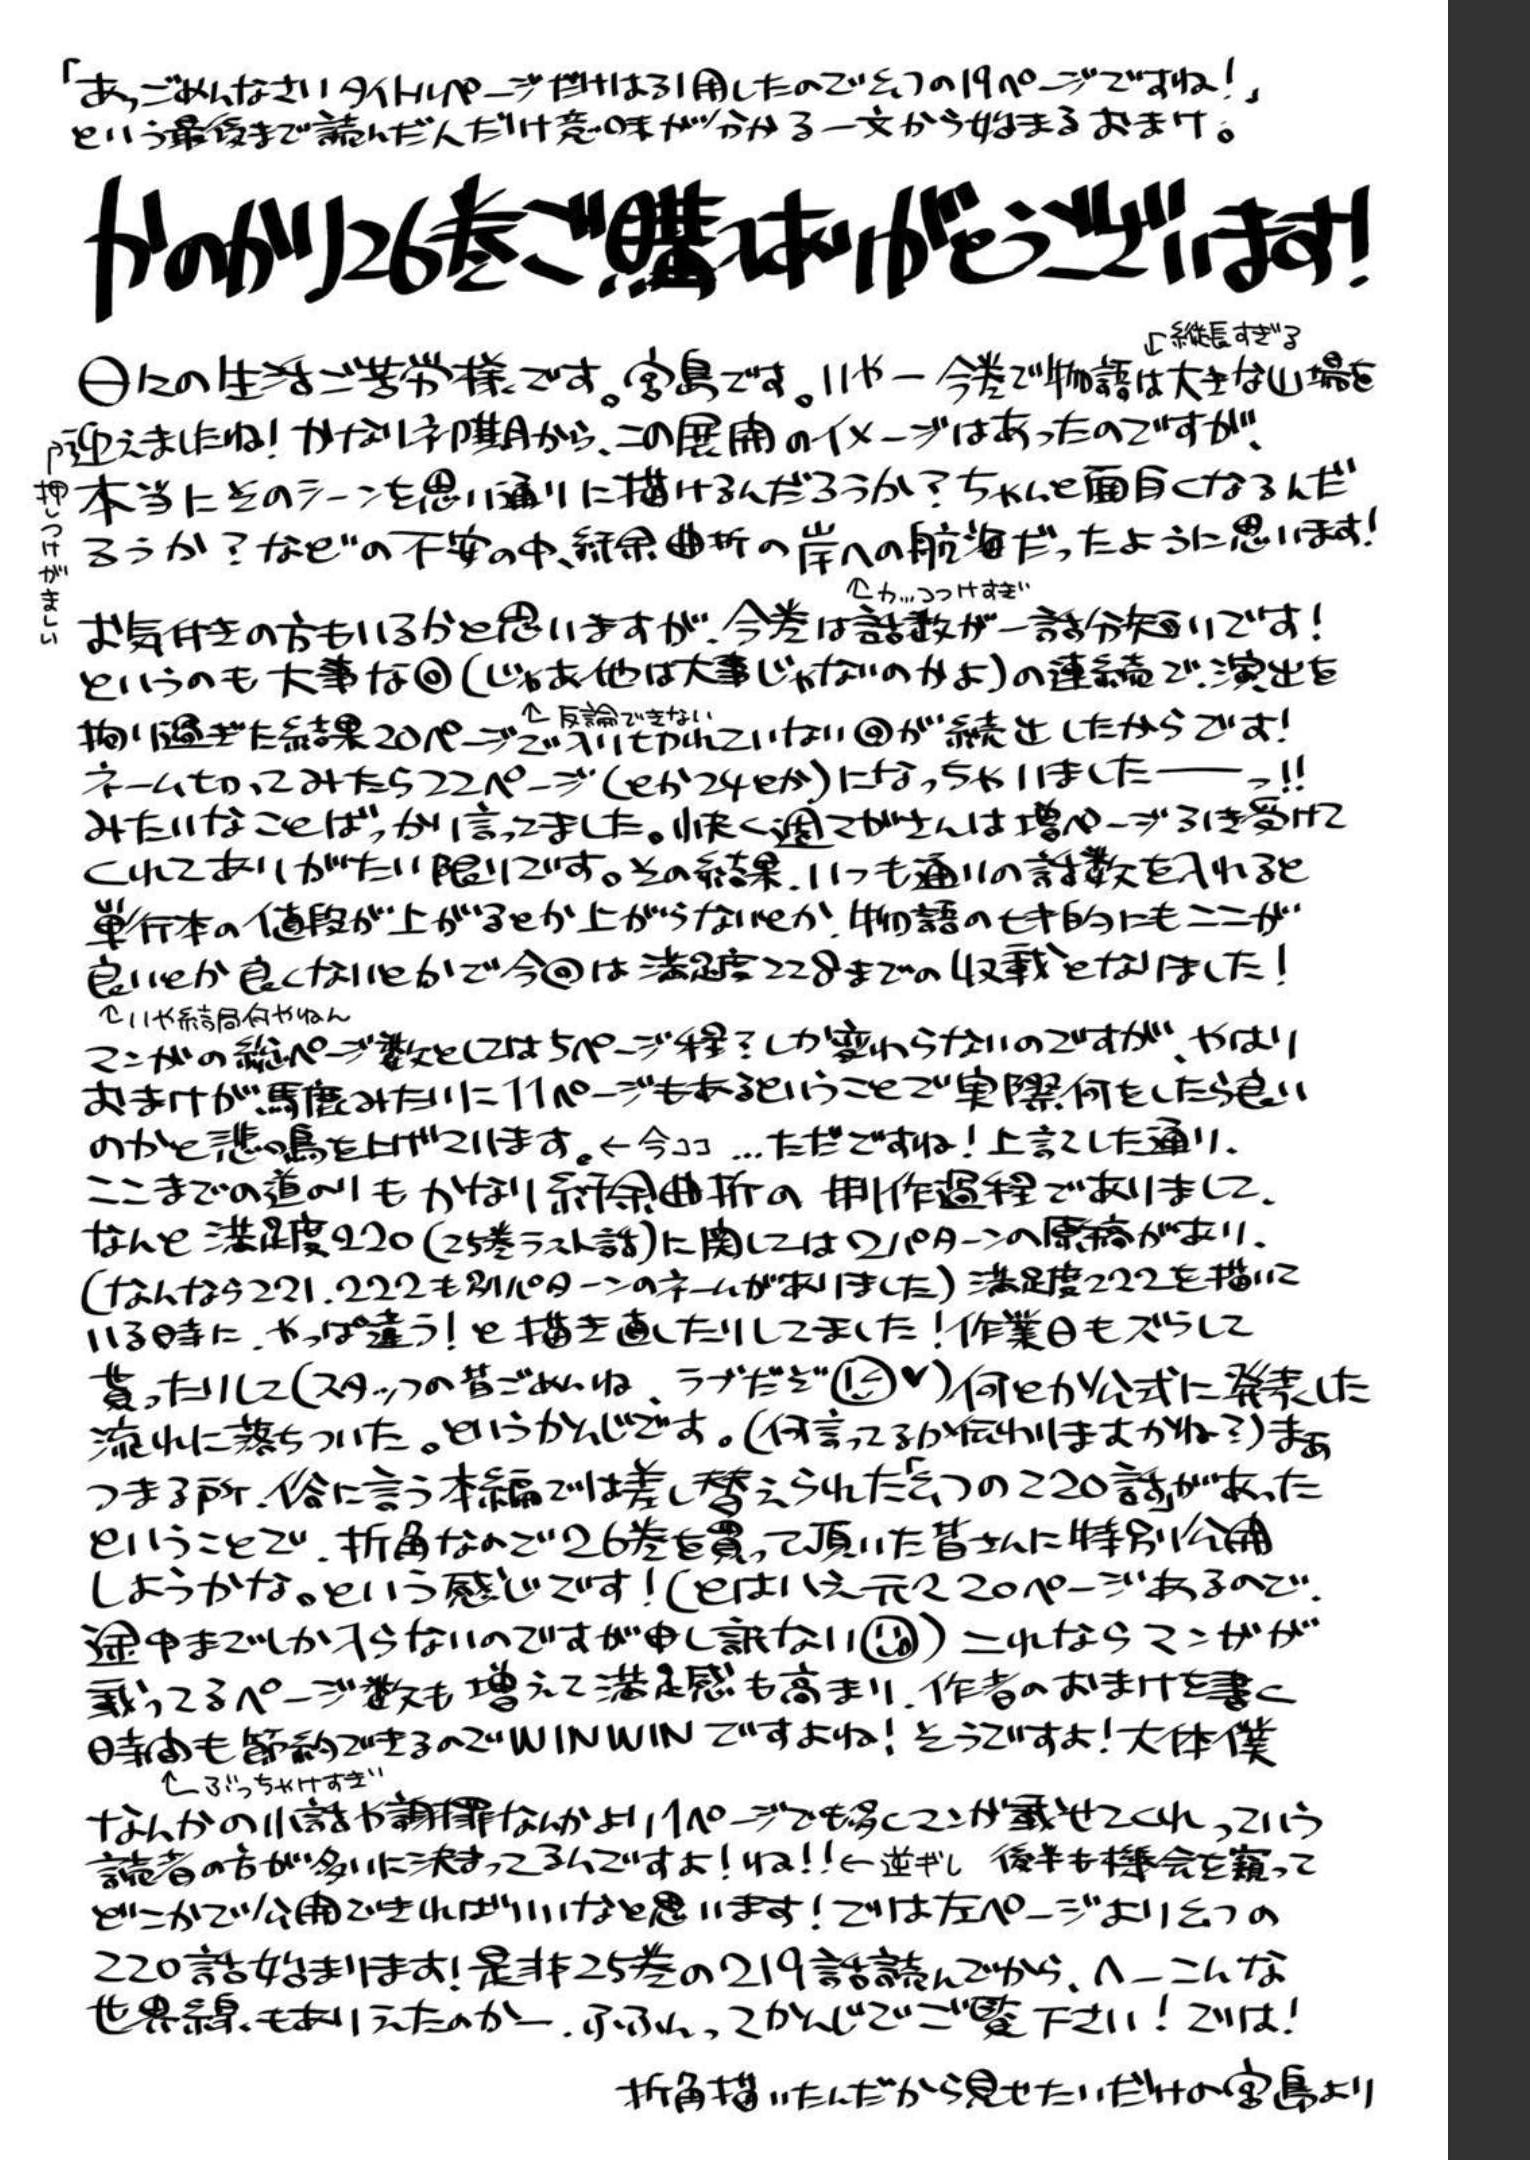 「あっごめんなさいタイトルページだけは引用したのでもう1つの19ページですね!」
という最後まで読んだ人だけ意味が分かる一文から始まるおまけ。
かのかり26巻ご購入ありがとうございます!
↓縦長すぎる
日々の生活ご苦労様です。宮島です。いやー今巻で物語は大きな山場を
迎えましたね!かなり初期から、この展開のイメージはあったのですが、
↑押しつけがましい
本当にそのシーンを思い通りに描けるんだろうか?ちゃんと面白くなるんだ
ろうか?などの不安の中、紆余曲折の岸への航海だったように思います!
↑カッコつけすぎ
お気付きの方もいるかと思いますが、今巻は話数が一話分短いです!
というのも大事な回(じゃあ他は大事じゃないのかよ)の連続で、演出を
↑反論できない
拘り過ぎた結果20ページで入り切れていない回が続出したからです!
ネーム切ってみたら22ページ(とか24とか)になっちゃいましたーーっ!!
みたいなことばっかり言ってました。快く週マガさんは増ページ引き受けて
くれてありがたい限りです。その結果、いつも通りの話数を入れると
単行本の値段が上がるとか上がらないとか、物語のキリ的にもここが
良いとか良くないとかで今回は満足度228までの収載となりました!
↑いや結局何やねん
マンガの総ページ数としては5ページ程?しか変わらないのですが、やはり
おまけが馬鹿みたいに11ページもあるということで実際何をしたら良い
のかと悲鳴を上げています。←今ココ …ただですね!上記した通り、
ここまでの道のりもかなり紆余曲折の制作過程でありまして、
なんと満足度220(25巻ラスト話)に関しては2パターンの原稿があり、
(なんなら221.222も別パターンのネームがありました)満足度222を描いて
いる時に、やっぱ違う!と描き直したりしてました!作業日もズラして
貰ったりして(スタッフの皆ごめんね、ラブだぞ♥)何とか公式に発表した
流れに落ちついた。というかんじです。(何言ってるか伝わりますかね?)まぁ
つまる所、俗に言う本編では差し替えられた「もう1つの220話」があった
ということで、折角なので26巻を買って頂いた皆さんに特別公開
しようかな。という感じです!(とはいえ元々20ページあるので、
途中までしか入らないのですが申し訳ない)これならマンガが
載ってるページ数も増えて満足感も高まり、作者のおまけを書く
時間も節約できるのでWINWINですよね!そうですよ!大体僕
↑ぶっちゃけすぎ
なんかの小話や謝罪なんかより1ページでも多くマンガ載せてくれっていう
読者の方が多いに決まってるんですよ!ね!!←逆ギレ 後半も機会を窺って
どこかで公開できればいいなと思います!では左ページよりもう1つの
220話始まります!是非25巻の219話読んでから、へーこんな
世界線もありえたのかー、ふふんってかんじでご覧下さい!では!
折角描いたんだから見せたいだけの宮島より